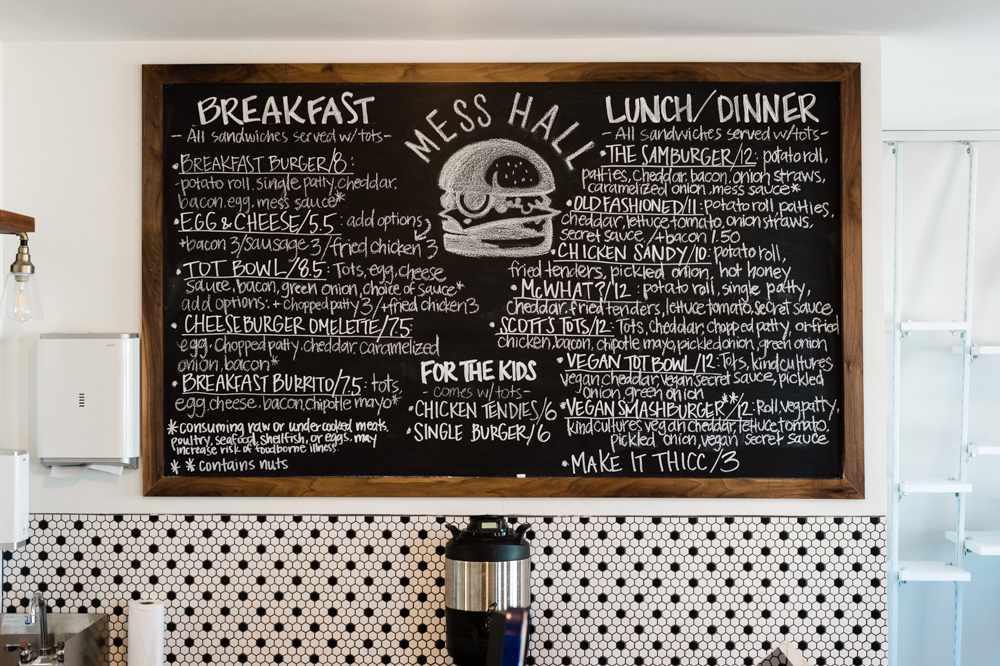 MESS HALL
BREAKFAST
- All sandwiches served w/tots -
• BREAKFAST BURGER/8:
potato roll, single patty, cheddar,
bacon, egg, mess sauce*
• EGG & CHEESE/5.5: add options
+bacon 3/sausage 3/fried chicken 3
• TOT BOWL/8.5: Tots, egg, cheese
sauce, bacon, green onion, choice of sauce*
add options: + chopped patty 3/+fried chicken 3
• CHEESEBURGER OMELETTE/7.5:
egg, chopped patty, cheddar, caramelized
onion, bacon*
• BREAKFAST BURRITO/7.5: tots,
egg, cheese, bacon, chipotle mayo*
*consuming raw or undercooked meats,
poultry, seafood, shellfish, or eggs, may
increase risk of foodborne illness.
** contains nuts
FOR THE KIDS
- comes w/tots -
• CHICKEN TENDIES/6
• SINGLE BURGER/6
LUNCH/DINNER
- All sandwiches served w/tots -
• THE SAMBURGER/12: potato roll,
patties, cheddar, bacon, onion straws,
caramelized onion, mess sauce*
• OLD FASHIONED/11: potato roll, patties,
cheddar, lettuce, tomato, onion straws,
secret sauce /+bacon 1.50
• CHICKEN SANDY/10: potato roll,
fried tenders, pickled onion, hot honey
• McWHAT?/12: potato roll, single patty,
cheddar, fried tenders, lettuce, tomato, secret sauce
• SCOTT'S TOTS/12: Tots, cheddar, chopped patty, or fried
chicken, bacon, chipotle mayo, pickled onion, green onion
• VEGAN TOT BOWL/12: Tots, kind cultures
vegan cheddar, vegan secret sauce, pickled
onion, green onion
• VEGAN SMASHBURGER**/12: Roll, veg patty,
kind cultures vegan cheddar, lettuce, tomato,
pickled onion, vegan secret sauce
• MAKE IT THICC/3